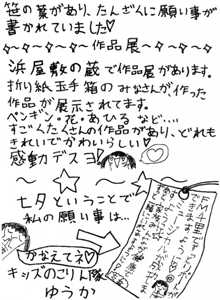 笹の葉があり、たんざくに願い事が
書かれていました♡
～作品展～
浜屋敷の蔵で作品展があります。
折り紙玉手箱のみなさんが作った
作品が展示されてます。
ペンギン・花・あひる など…。
すごくたくさんの作品があり、どれも
きれいでかわいらしい♡
感動デスヨ！
七夕ということで
私の願い事は…
かなえてネ♡
キッズのこりん隊
ゆうか